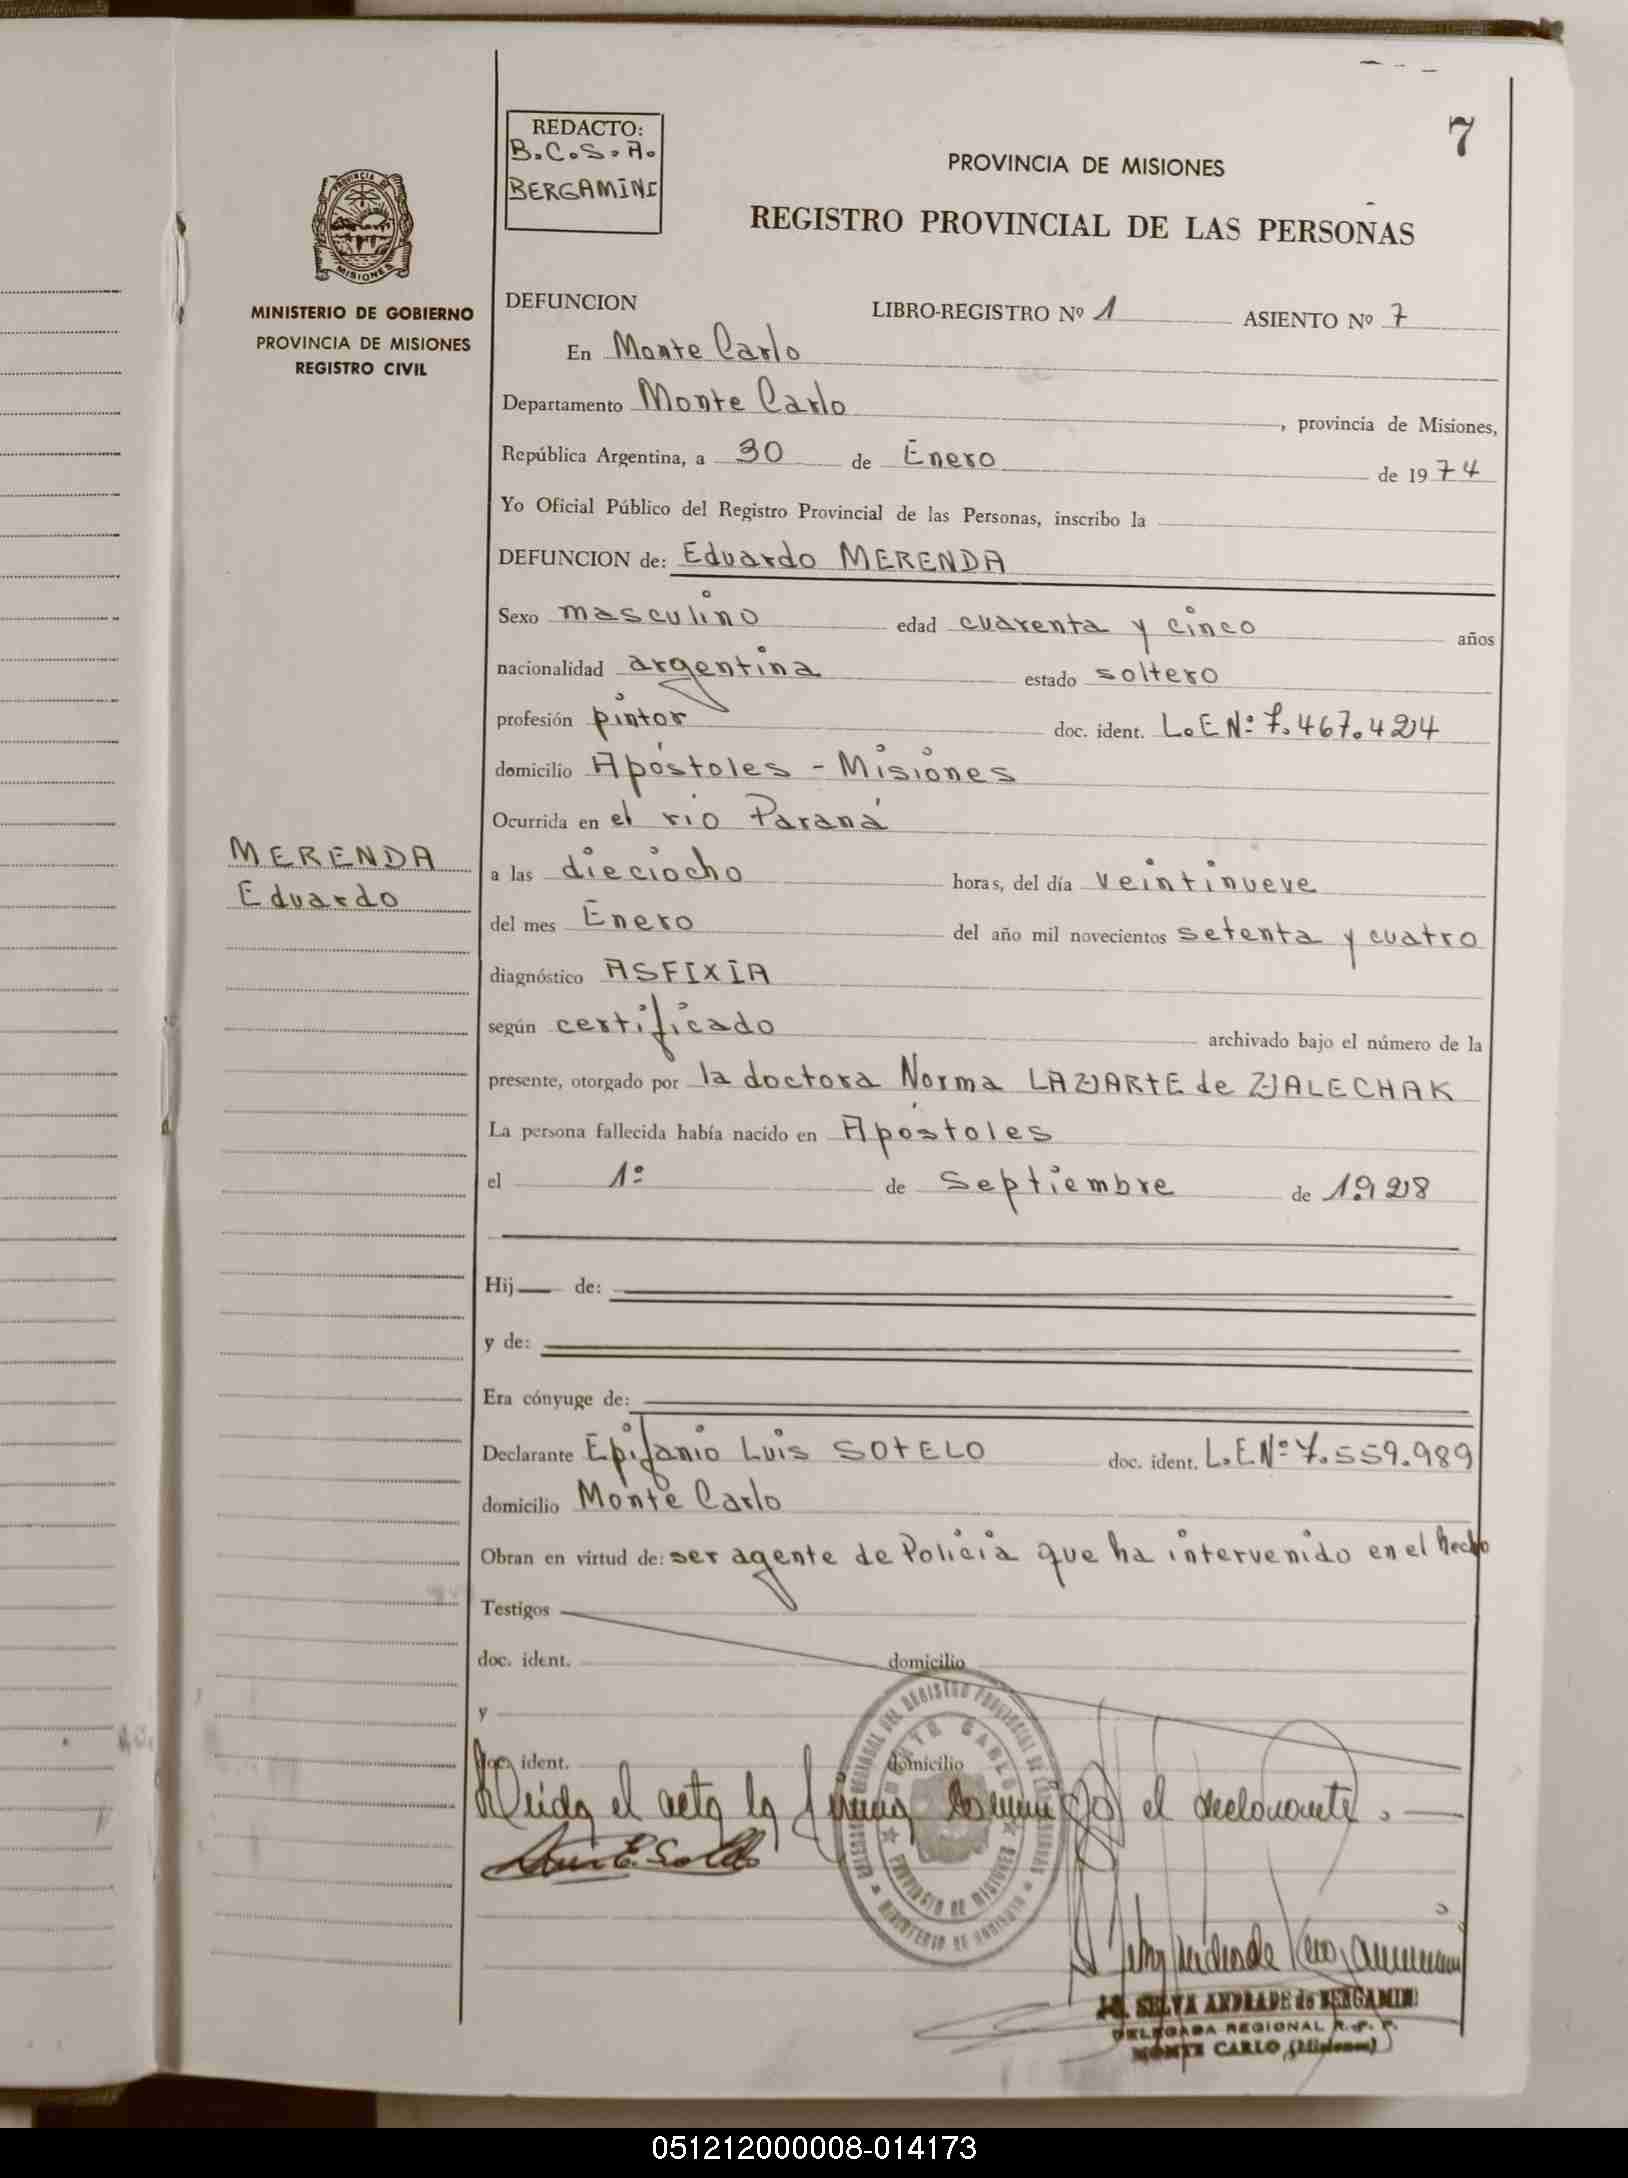 7
REDACTO:
B.C.S.A.
BERGAMINI
PROVINCIA DE MISIONES
REGISTRO PROVINCIAL DE LAS PERSONAS
PROVINCIA DE
MISIONES
MINISTERIO DE GOBIERNO
PROVINCIA DE MISIONES
REGISTRO CIVIL
DEFUNCION LIBRO-REGISTRO Nº 1 ASIENTO Nº 7
En Monte Carlo
Departamento Monte Carlo, provincia de Misiones,
República Argentina, a 30 de Enero de 1974
Yo Oficial Público del Registro Provincial de las Personas, inscribo la
DEFUNCION de: Eduardo MERENDA
Sexo masculino edad cuarenta y cinco años
nacionalidad argentina estado soltero
profesión pintor doc. ident. L.E Nº 7.467.424
domicilio Apóstoles - Misiones
Ocurrida en el río Paraná
MERENDA
Eduardo
a las dieciocho horas, del día veintinueve
del mes Enero del año mil novecientos setenta y cuatro
diagnóstico ASFIXIA
según certificado archivado bajo el número de la
presente, otorgado por la doctora Norma LAZARTE de ZALECHAK
La persona fallecida había nacido en Apóstoles
el 1º de Septiembre de 1928
Hij de:
y de:
Era cónyuge de:
Declarante Epifanio Luis SOTELO doc. ident. L.E Nº 7.559.989
domicilio Monte Carlo
Obran en virtud de: ser agente de Policía que ha intervenido en el hecho
Testigos
doc. ident. domicilio
y
doc. ident. domicilio
Leída el acta la firma conmigo el declarante.
DELEGACION REGIONAL DEL REGISTRO PROVINCIAL DE LAS PERSONAS
MINISTERIO DE GOBIERNO
MONTE CARLO
PROVINCIA DE MISIONES
SELVA ANDRADE de BERGAMINI
DELEGADA REGIONAL R. P. P.
MONTE CARLO (Misiones)
051212000008-014173